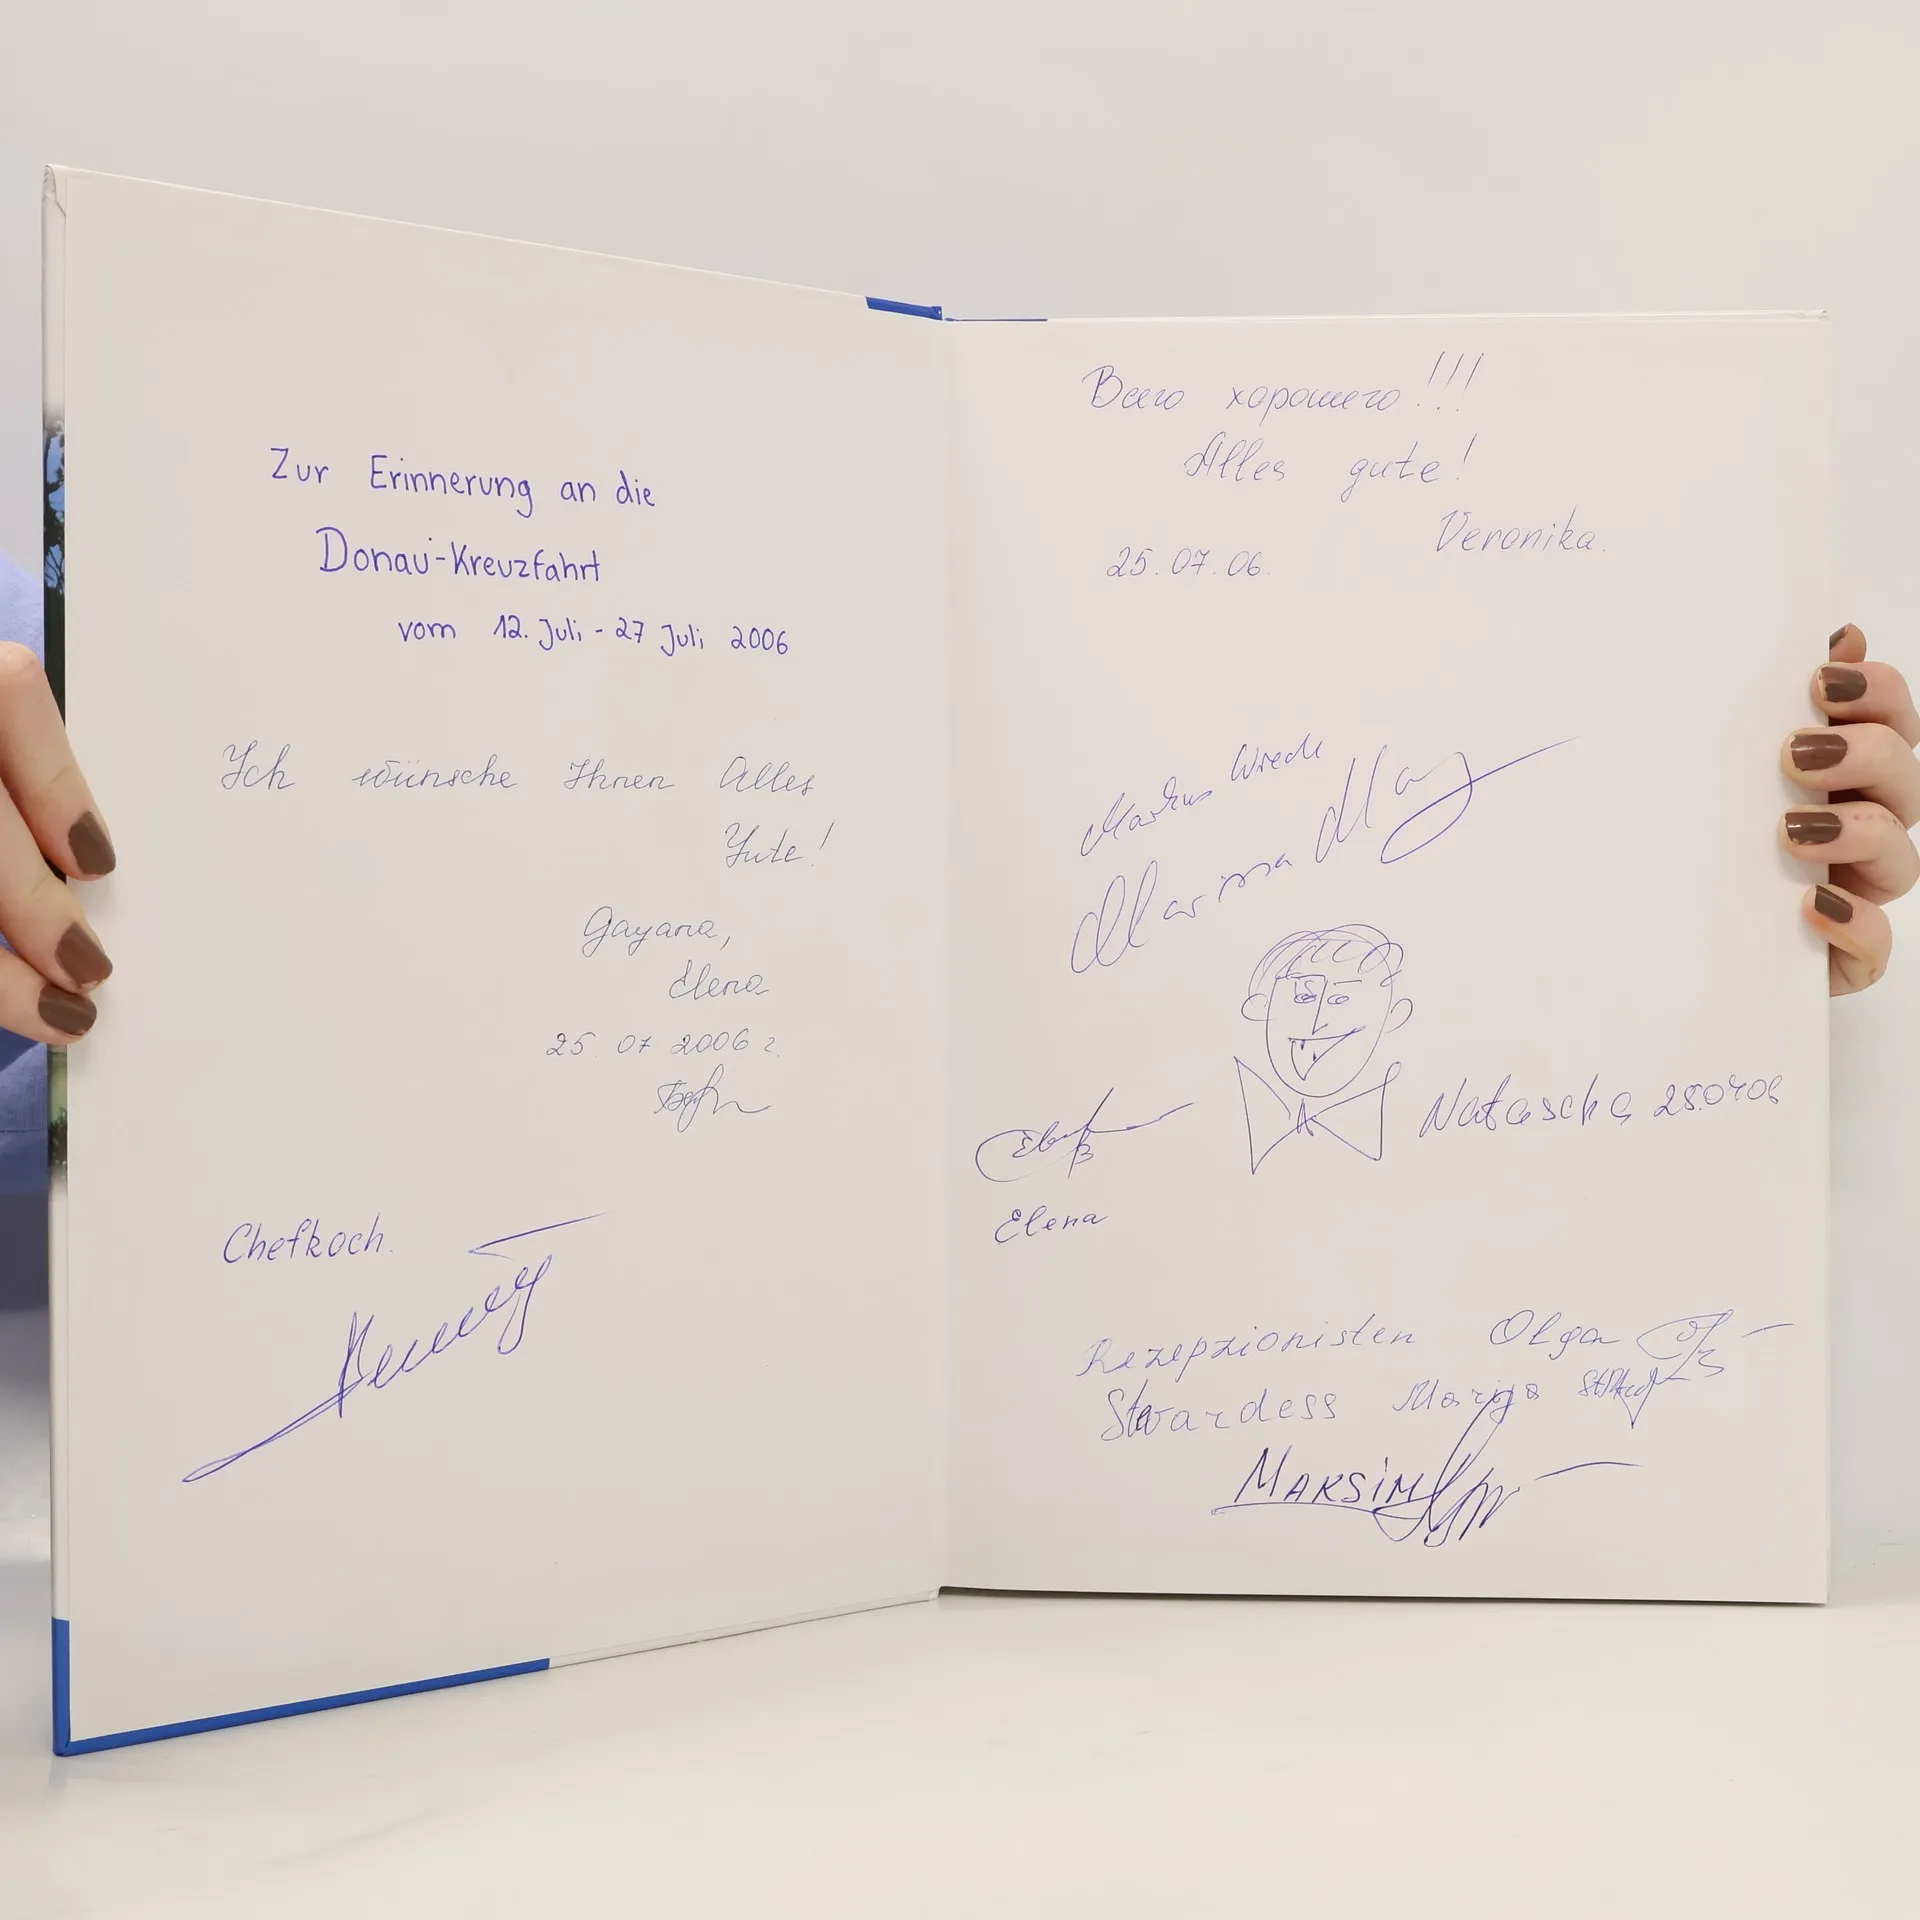 Zur Erinnerung an die
Donau-Kreuzfahrt
vom 12. Juli - 27 Juli 2006
Ich wünsche Ihnen Alles
Gute!
Gayana,
Elena
25 07 2006 г.
Chefkoch.
Всего хорошего!!!
Alles gute!
Veronika.
25.07.06.
Markus
Marina
Natascha 25.07.06
Elena
Rezepzionisten Olga
Stwardess Marija
MAKSiM